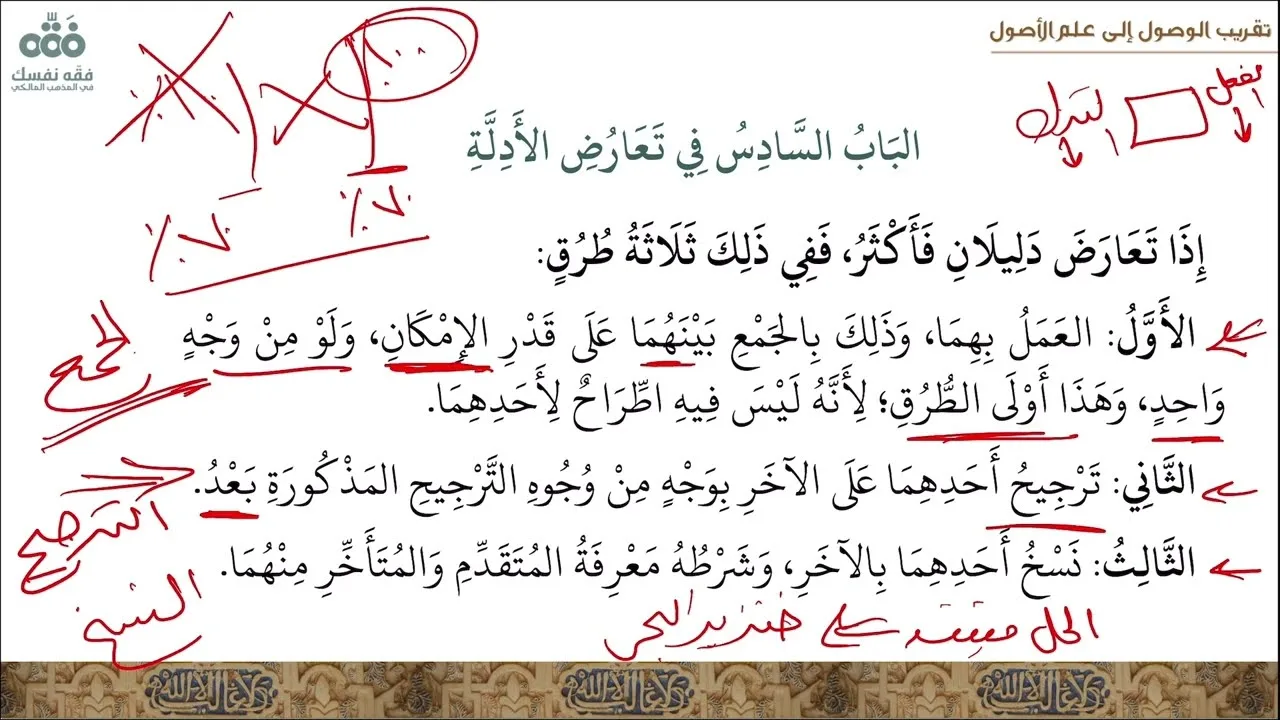 تقريب الوصول إلى علم الأصول
فقه نفسك
في المذهب المالكي
البَابُ السَّادِسُ فِي تَعَارُضِ الأَدِلَّةِ
إِذَا تَعَارَضَ دَلِيلَانِ فَأَكْثَرُ، فَفِي ذَلِكَ ثَلَاثَةُ طُرُقٍ:
الأَوَّلُ: العَمَلُ بِهِمَا، وَذَلِكَ بِالجَمْعِ بَيْنَهُمَا عَلَى قَدْرِ الإِمْكَانِ، وَلَوْ مِنْ وَجْهٍ
وَاحِدٍ، وَهَذَا أَوْلَى الطُّرُقِ؛ لِأَنَّهُ لَيْسَ فِيهِ اطِّرَاحٌ لِأَحَدِهِمَا.
الجمع
الثَّانِي: تَرْجِيحُ أَحَدِهِمَا عَلَى الآخَرِ بِوَجْهٍ مِنْ وُجُوهِ التَّرْجِيحِ المَذْكُورَةِ بَعْدُ.
الترجيح
الثَّالِثُ: نَسْخُ أَحَدِهِمَا بِالآخَرِ، وَشَرْطُهُ مَعْرِفَةُ المُتَقَدِّمِ وَالمُتَأَخِّرِ مِنْهُمَا.
النسخ
خنزير البحر